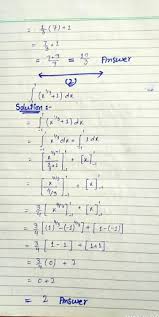 = 7/3 + 1
= 10/3 Answer
(2)
∫ (x^{1/3} + 1) dx
Solution:-
= ∫_{-1}^{1} (x^{1/3} + 1) dx
= ∫_{-1}^{1} x^{1/3} dx + ∫_{-1}^{1} 1 dx
= + [x]_{-1}^{1}
= [x^{4/3} / 4/3]_{-1}^{1} + [x]_{-1}^{1}
= 3/4 [x^{4/3}]_{-1}^{1} + [x]_{-1}^{1}
= 3/4 [(1)^{4/3} - (-1)^{4/3}] + [1 - (-1)]
= 3/4 [1 - 1] + [1 + 1]
= 3/4 (0) + 2
= 0 + 2
= 2 Answer